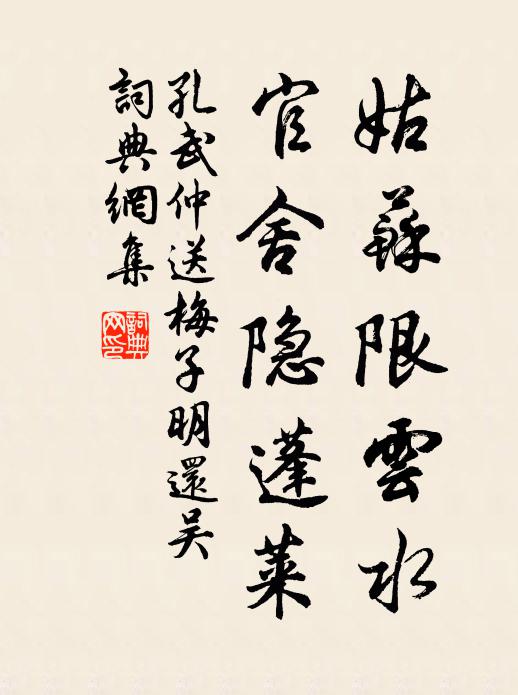 姑蘇限雲水
官舍隐蓬萊
孔武仲送梅子明還吴
詞典網集
詞典网印